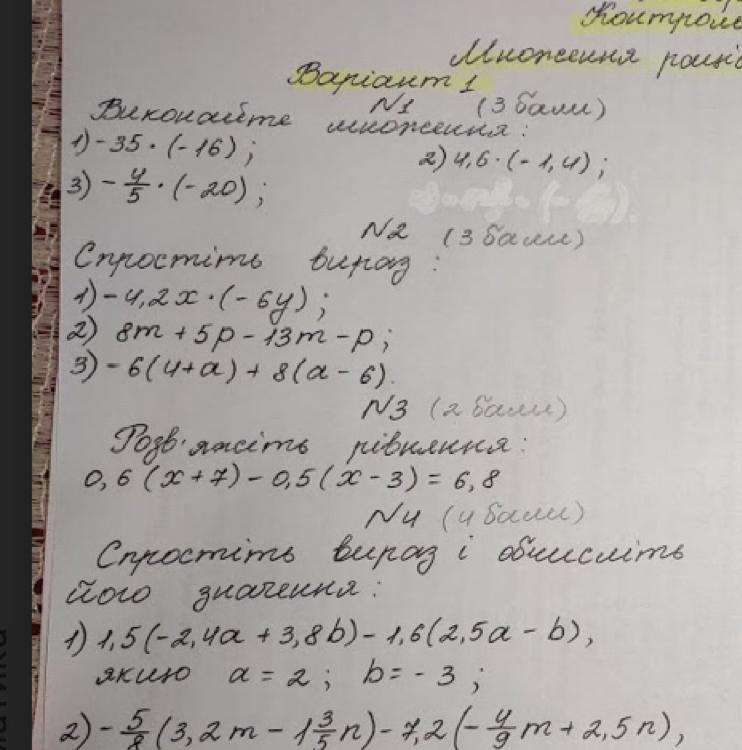 Множення раці
Варіант 1
N1 (3 бали)
Виконайте множення:
1) -35 · (-16); 2) 4,6 · (-1,4);
3) - 4/5 · (-20);
N2 (3 бали)
Спростіть вираз:
1) -4,2x · (-6y);
2) 8m + 5p - 13m - p;
3) -6(4+a) + 8(a - 6).
N3 (2 бали)
Розв'яжіть рівняння:
0,6(x+7) - 0,5(x-3) = 6,8
N4 (4 бали)
Спростіть вираз і обчисліть
його значення:
1) 1,5(-2,4a + 3,8b) - 1,6(2,5a - b),
якщо a = 2; b = -3;
2) - 5/8 (3,2m - 1 3/5 n) - 7,2(- 4/9 m + 2,5n),